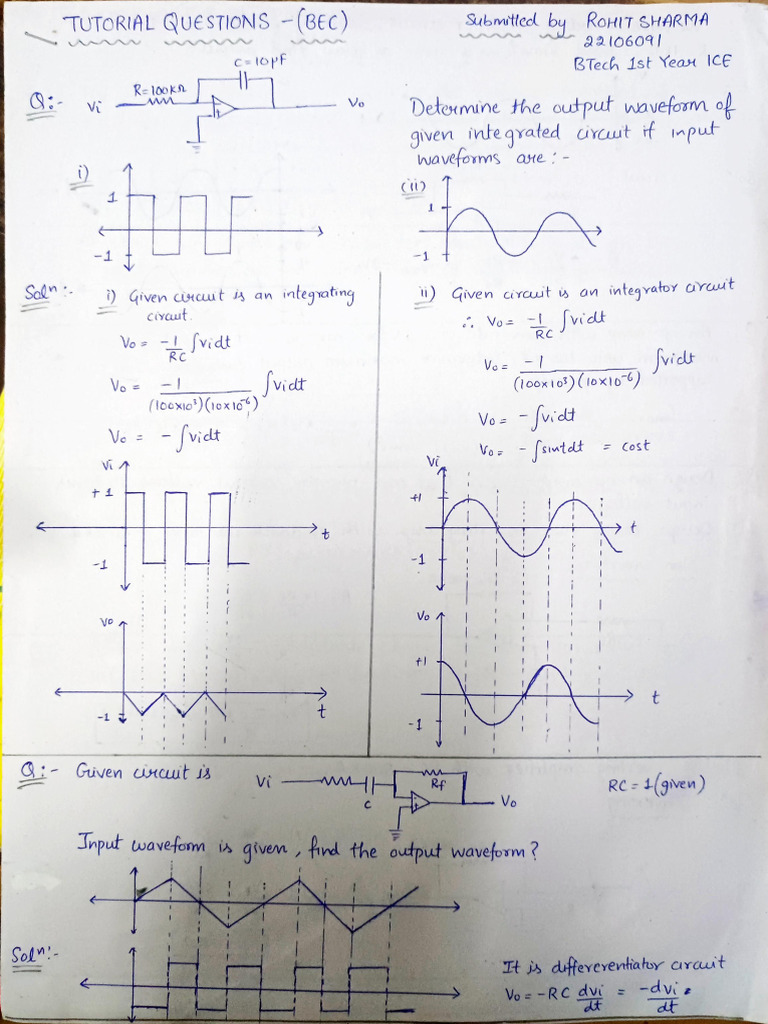 TUTORIAL QUESTIONS - (BEC)
Submitted by ROHIT SHARMA
22106091
BTech 1st Year ICE
Q:- Vi R=100KΩ C=10μF Vo
Determine the output waveform of
given integrated circuit if input
waveforms are :-
i)
1
-1
(ii)
1
-1
Solⁿ:- i) Given circuit is an integrating
circuit.
Vo = -1/RC ∫vidt
Vo = -1/(100x10³)(10x10⁻⁶) ∫vidt
Vo = - ∫vidt
Vi
+1
-1
t
Vo
-1
t
ii) Given circuit is an integrator circuit
∴ Vo = -1/RC ∫vidt
Vo = -1/(100x10³)(10x10⁻⁶) ∫vidt
Vo = - ∫vidt
Vo = - ∫sintdt = cost
Vi
+1
-1
t
Vo
+1
-1
t
Q:- Given circuit is Vi C Rf Vo RC = 1 (given)
Input waveform is given, find the output waveform?
Solⁿ:-
It is differerentiator circuit
Vo = -RC dvi/dt = -dvi/dt